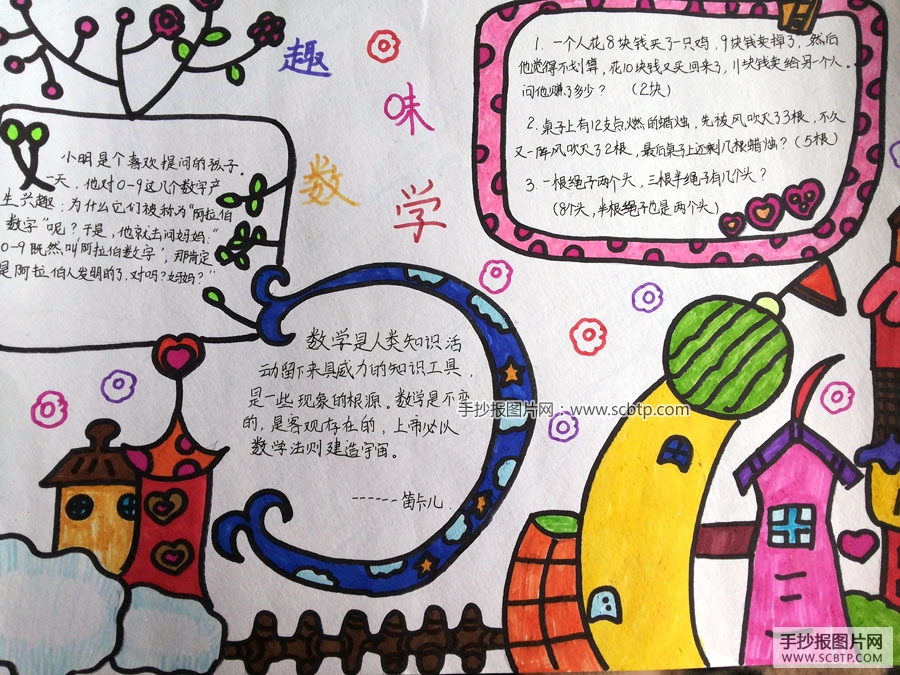 趣
味
数
学
1. 一个人花8块钱买了一只鸡，9块钱卖掉了，然后
他觉得不划算，花10块钱又买回来了，11块钱卖给另一个人。
问他赚了多少？ （2块）
2. 桌子上有12支点燃的蜡烛，先被风吹灭了3根，不久
又一阵风吹灭了2根，最后桌子上还剩几根蜡烛？（5根）
3. 一根绳子两个头，三根半绳子有几个头？
（8个头，半根绳子也是两个头）
小明是个喜欢提问的孩子。
一天，他对0－9这几个数字产
生兴趣：为什么它们被称为“阿拉伯
数字”呢？于是，他就去问妈妈：“
0-9既然叫“阿拉伯数字”，那肯定
是阿拉伯人发明的了，对吗？妈妈？”
数学是人类知识活
动留下来具威力的知识工具，
是一些现象的根源。数学是不变
的，是客观存在的，上帝必以
数学法则建造宇宙。
------笛卡儿.
手抄报图片网：www.scbtp.com
手抄报图片网
WWW.SCBTP.COM